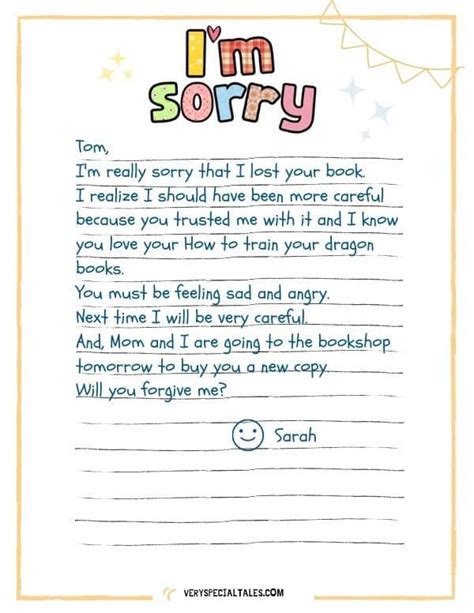 I'm
sorry
Tom,
I'm really sorry that I lost your book.
I realize I should have been more careful
because you trusted me with it and I know
you love your How to train your dragon
books.
You must be feeling sad and angry.
Next time I will be very careful.
And, Mom and I are going to the bookshop
tomorrow to buy you a new copy.
Will you forgive me?
Sarah
VERYSPECIALTALES.COM